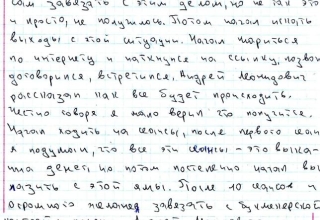 сам завязать с этим делом, но не так это
и просто, не получилось. Потом начал искать
выходы с этой ситуации. Начал шариться
по интернету и наткнулся на ссылку, позвон
договорился, встретился. Андрей Леонидович
рассказал как все будет происходить.
Честно говоря я мало верил что получится.
Начал ходить на сеансы, после первого сеанс
я подумал, что все эти сеансы - это выка-
чка денег, но потом постепенно начал вы
лазить с этой ямы. После 10 сеансов и
огромного желания завязать с букмекерской